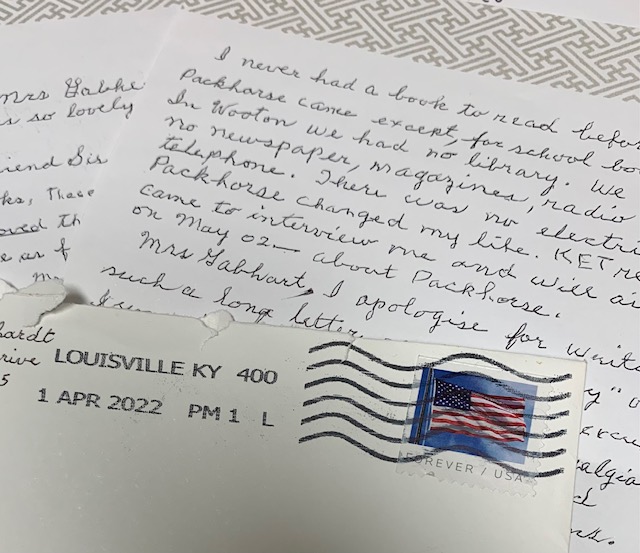 Mrs Gabha
is so lovely
friend Sis
ks, These
loved th
e as f
I never had a book to read befor
Packhorse came except, for school bo
In Wooton we had no library. We
no newspaper, magazines, radio
telephone. There was no electri
Packhorse changed my life. KET
came to interview me and will ai
on May 02 — about Packhorse.
Mrs Gabhart, I apologise for writ
such a long letter
y" o
ercu
algia
d
ns.
hardt
rive
5
LOUISVILLE KY 400
1 APR 2022 PM 1 L
FOREVER / USA